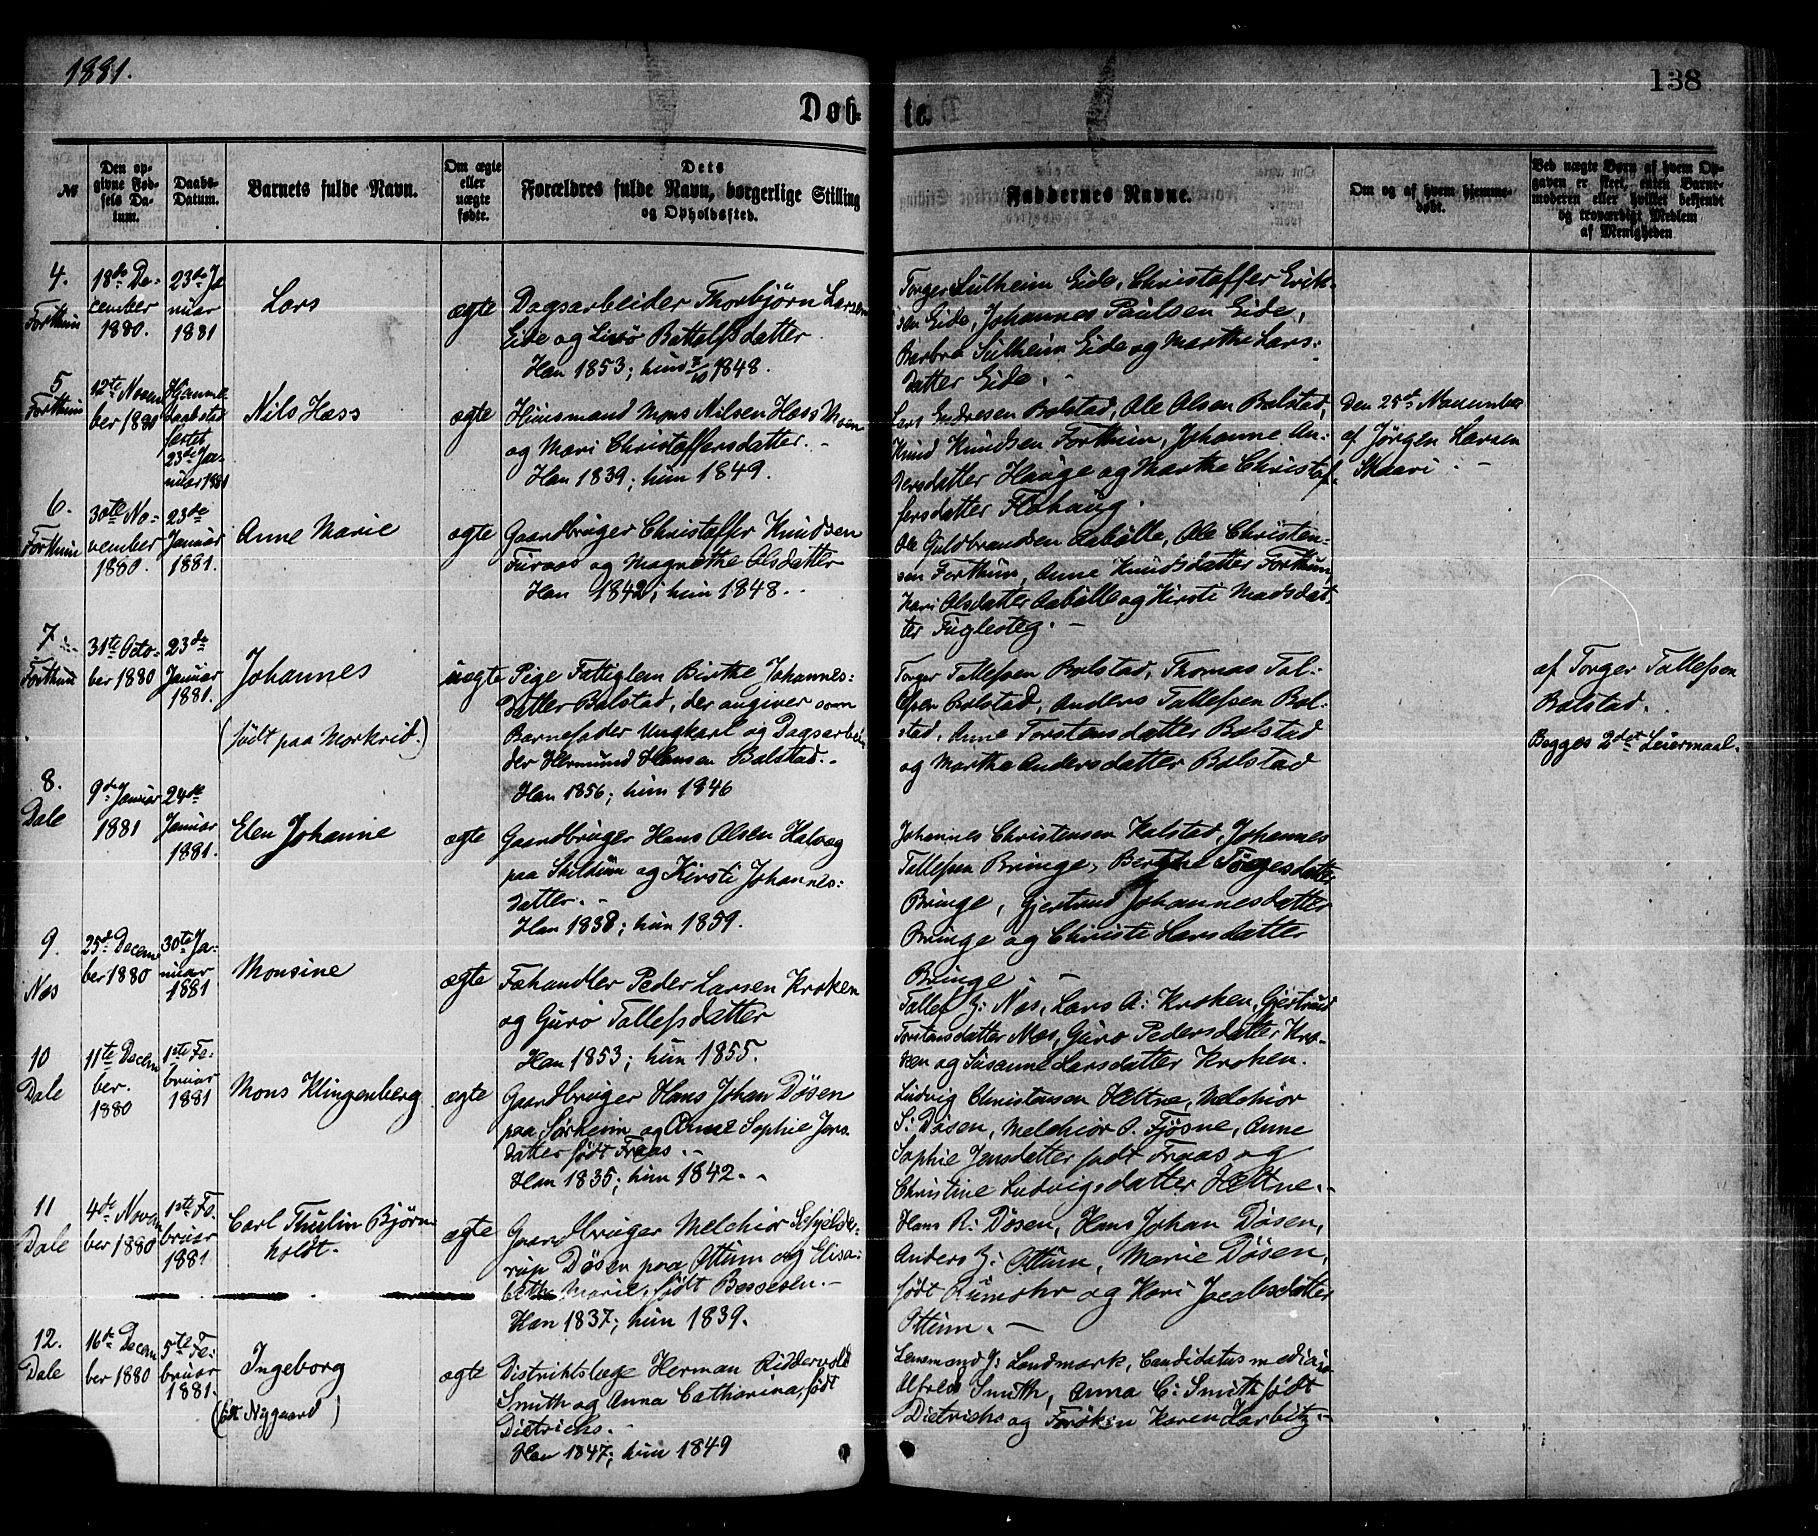 1881.
138
Døb-
te
№
Den op-
givne Fød-
sels Da-
tum.
Daabs-
Datum.
Barnets fulde Navn.
Om ægte
eller
uægte
født.
Dets
Forældres fulde Navn, borgerlige Stilling
og Opholdssted.
Faddernes Navne.
Om og af hvem hjemme-
døbt.
Ved uægte Børn af hvem Op-
gaven er skeet, enten Barne-
moderen eller hvilket bekjendt
og troværdigt Medlem
af Menigheden
4.
Forthun
18de De-
cember
1880.
23de Ja-
nuar
1881
Lars
ægte
Dagsarbeider Thorbjørn Larsen
Eide og Battolfsdatter
Han 1853; hun 1848.
Torger Sulheim Eide, Christoffer Erik-
sen Eide, Johannes Paulsen Eide,
Barbra Sulheim Eide og Marthe Lars-
datter Eide.
5
Forthun
12te Novem
ber 1880
Hjemme
daab stad
festet
23de Ja-
nuar 1881
Nils Hass
ægte
Huusmand Mons Nilsen Hass Moen
og Mari Christoffersdatter.
Han 1839; hun 1849.
Lars Endresen Bolstad, Ole Olsen Bolstad,
Knud Knudsen Forthun, Johanne An-
dersdatter Hauge og Marthe Christof-
fersdatter Flohaug.
Den 25de November
af Jørgen Larsen
Skaari.
6.
Forthun
30te No-
vember
1880.
23de
Januar
1881.
Anne Marie
ægte
Gaardbruger Christoffer Knudsen
Furaas og Magnethe Olsdatter
Han 1842; hun 1848.
Ole Guldbrandsen Aabølle, Ole Christen-
sen Forthun, Anne Knudsdatter Forthun,
Kari Olsdatter Aabølle og Kirsti Madsdat-
ter Fuglesteg.
7
Forthun
31te Octo-
ber 1880
23de
Januar
1881.
Johannes
(født paa Morkrid.)
uægte
Pige Fattiglem Birthe Johannes-
datter Bolstad, der angiver som
Barnefader Ungkarl og Dagsarbei
der Hermund Hansen Bolstad.
Han 1856; hun 1846
Torger Tollefsen Bolstad, Thomas Tol-
lefsen Bolstad, Anders Tollefsen Bol-
stad, Anne Torstensdatter Bolstad
og Marthe Andersdatter Bolstad
af Torger Tollefsen
Bolstad.
Begges 2det Leiermaal.
8.
Dale
9de Januar
1881
24de
Januar
1881.
Elen Johanne
ægte
Gaardbruger Hans Olsen
paa Skildum og Kirsti Johannes-
datter.
Han 1838; hun 1859.
Johannes Christensen Kolstad, Johannes
Tollefsen Bringe, Berthe Torgersdatter
Bringe, Gjertrud Johannesdatter
Bringe og Christi Larsdatter
Bringe.
9.
Nes
25de Decem
ber 1880
30te Ja-
nuar
1881
Monsine
ægte
Fæhandler Peder Larsen Kroken
og Guro Tollefsdatter
Han 1853; hun 1855.
Tollef Nes, Lars A: Kroken, Gjertrud
Torstensdatter Nes, Guro Pedersdatter Kro-
ken og Susanne Larsdatter Kroken.
10
Dale
11te Decem
ber.
1880
1ste Fe-
bruar
1881
Mons Klingenberg
ægte
Gaardbruger Hans Johan Døsen
paa Sørheim og Anne Sophie Jens
datter født Fraas.
Han 1835; hun 1842.
Ludvig Christensen Hettne, Melchior
S: Døsen, Melchior A. Fjøsne, Anne
Sophie Jensdatter født Fraas og
Christine Ludvigsdatter Hettne.
11
Dale
4de Novem
ber 1880
1ste Fe-
bruar
1881
Carl Thulin Bjørn
holdt.
ægte
Gaardbruger Melchior
Døsen paa Ottum og Elisa-
beth Marie, født Bessesen.
Han 1837; hun 1839.
Hans R: Døsen, Hans Johan Døsen,
Anders Ottum, Marie Døsen,
født Rumohr og Kari Jacobsdatter
Ottum.
12.
Dale
16de Decem
ber 1880
5te Fe-
bruar
1881.
Ingeborg
(født Nyggaard)
ægte
Distriktslæge Herman Riddervold
Smith og Anna Catharina, født
Dietrichs.
Han 1847; hun 1849
Lensmand J: Landmark, Candidatus medicin
Alfred Smith, Anna C: Smith født
Dietrichs og Frøken Karen Lorbitz.